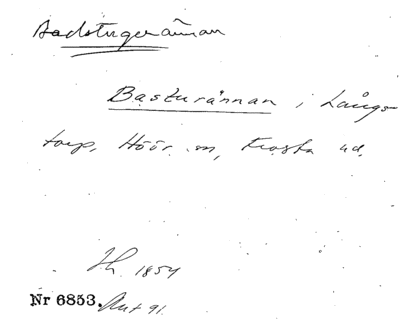 Badstugerännan
Basturännan i Långs-
torp, Höör sn, Frosta hd.
Jh. 1854
Nr 6853. Ant 91.